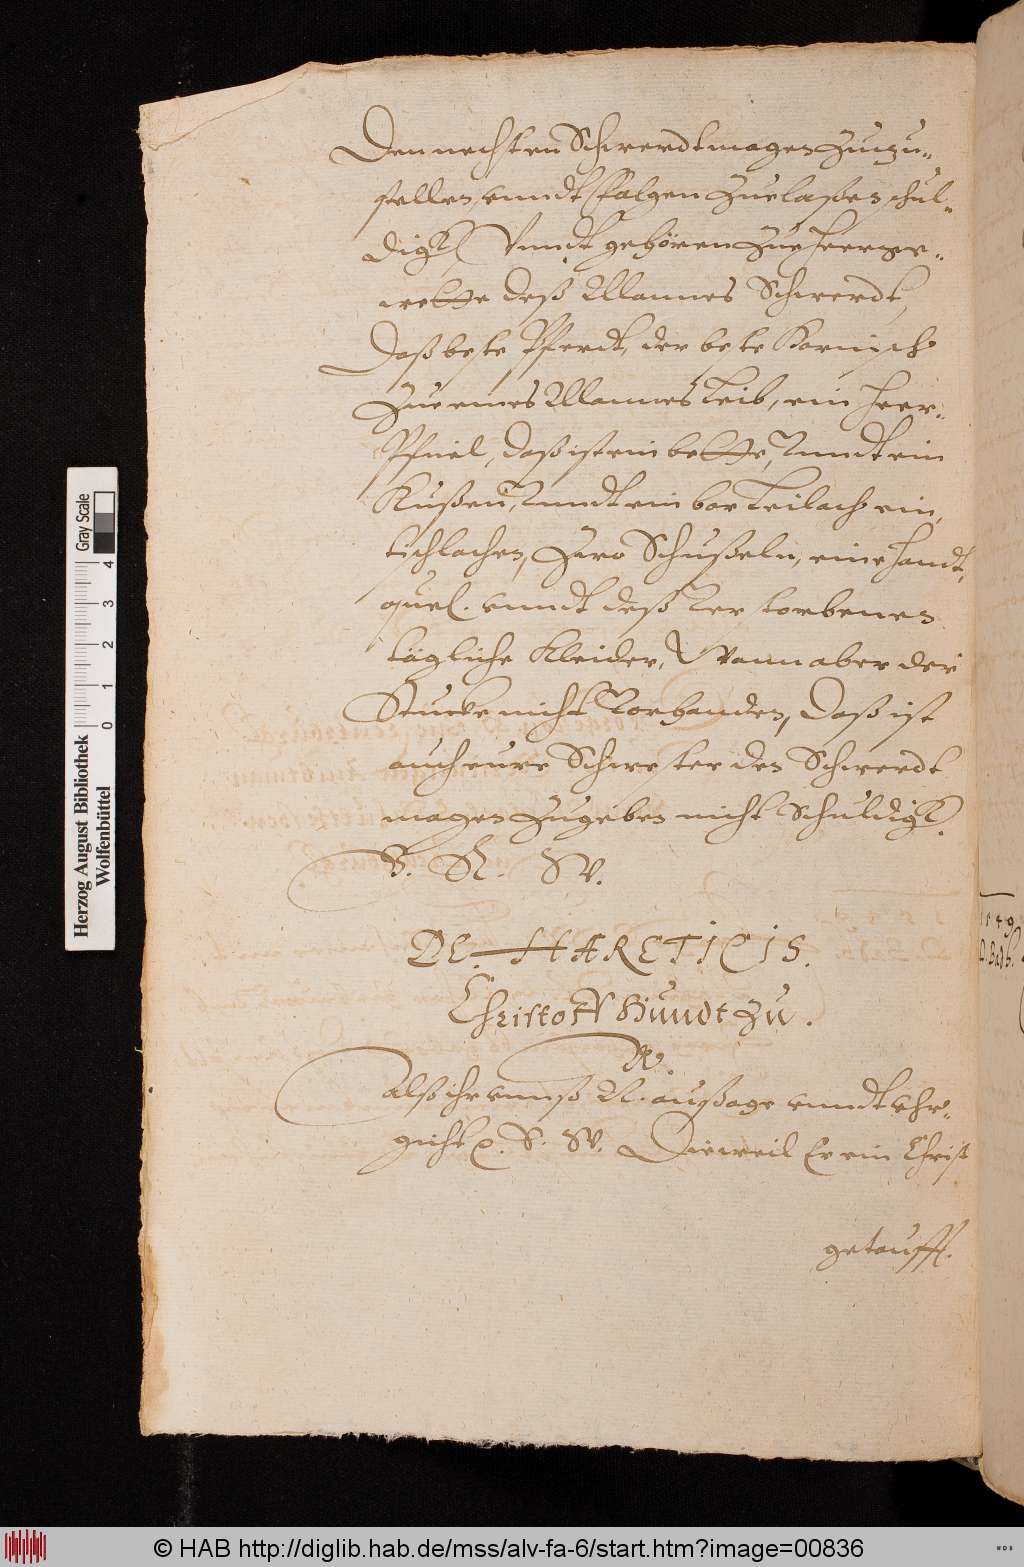 Den nechsten Schwerdtmagen Zuizu-
stellen vnndt folgen Zuelaßen schul-
digk Vnndt gehören Zue Heerge-
wette deß Mannes Schwerdt,
Daß beste Pferdt, der beste Harnisch
Zue eines Mannes Leib, ein Heer-
Pfuel, daß ist ein bette, Vnndt ein
Kußen, Vnndt ein bar Leilach ein
tischlachen, Zwo Schußeln, eine Handt
quel. vnndt deß Verstorbenen
tägliche Kleider, Wann aber der
Stucke nicht Vorhanden, Daß ist
auch eure Schwester den Schwerdt
magen Zugeben nicht Schuldigk.
V. R. W.
DE HARETICIS.
Christoff Hundt Zu.
W.
Alß ihr vnnß N. außage vnndt vhr-
gicht p. V. R. W. Dieweil Er ein Christ
getaufft.
1549
D. Badh.
Herzog August Bibliothek
Wolfenbüttel
0 1 2 3 4
Gray Scale
© HAB http://diglib.hab.de/mss/alv-fa-6/start.htm?image=00836
WDB